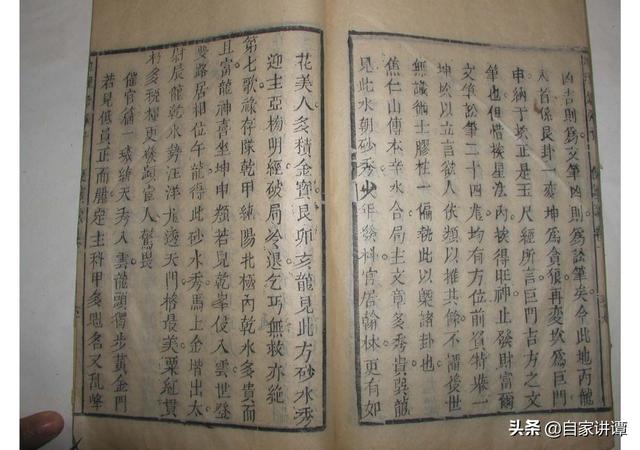 凶吉則為文筆凶則為訟筆矣今此地丙龍
入首係艮卦一變坤為貪狼再變坎為巨門
申納于坎正是玉尺經所言巨門吉方之文
筆也但惜挨星法內挨得旺神止發財富爾
文筆訟筆二十四龍均有方位前賢特舉一
坤坎以立言欲人依類以推其餘不謂後世
無識術士膠柱一偏執此以槩諸卦也
焦仁山傳本辛水合局主文章多秀貴巽龍
見此水朝砂秀少年發科官居翰林更有如
花美人多積金寶艮卯亥龍見此方砂水秀
迎主亞榜明經破局冷退乞丐無救亦絕
第七歌祿存隊乾甲純陽北極內乾水多貴而
且富龍神喜坐坤申類若見乾峯使入雲世登
要路居相位午龍得此砂水秀馬上金增出太
尉辰龍乾水勢汪洋尨透天門格最美粟紅貫
朽多稅糧更發顯宦人驚畏
催官篇一璣統天秀入雲龍頭獨步黃金門
若見低員正而腯定主科甲多魁名又乱峰
头条 @自家讲谭